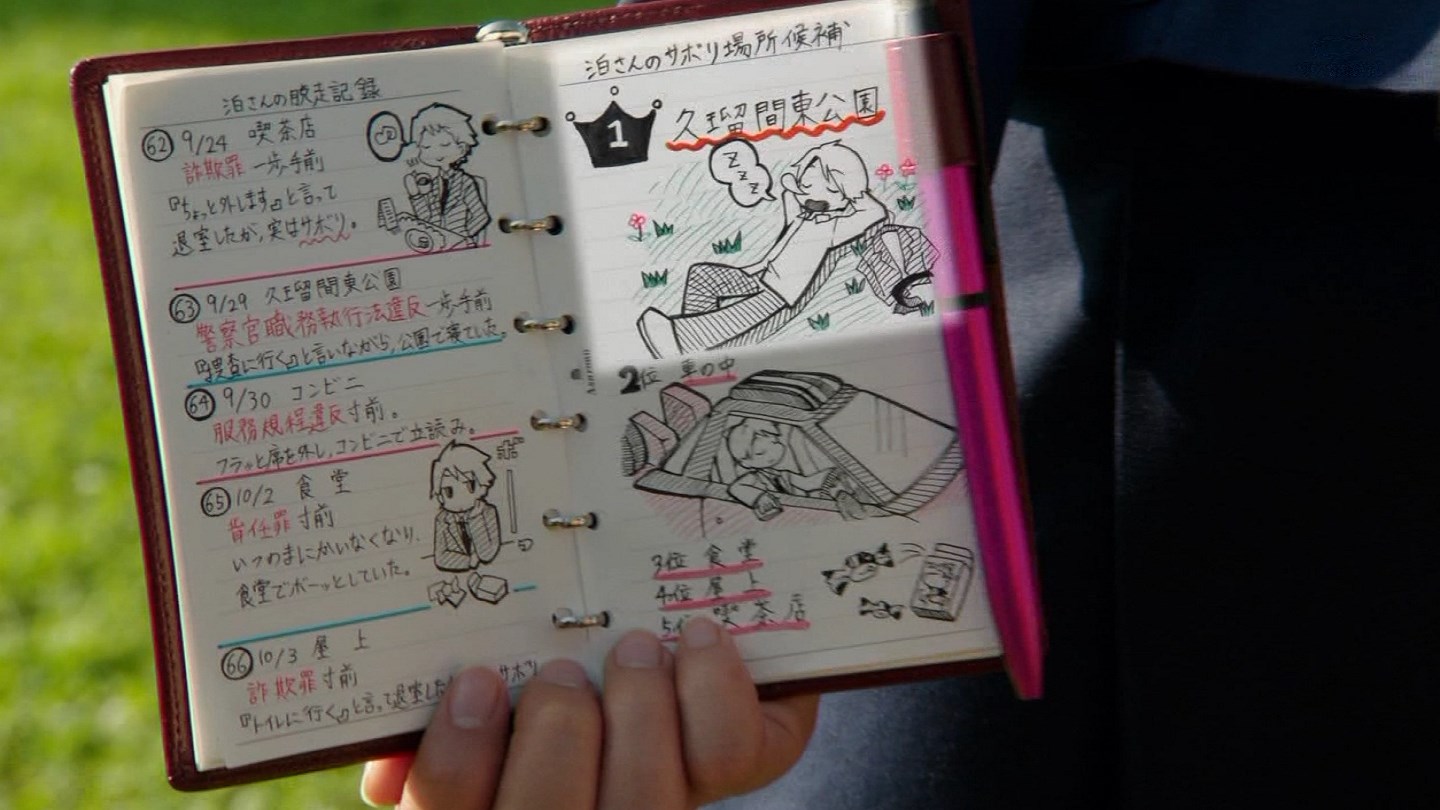 泊さんの脱走記録
62 9/24 喫茶店
詐欺罪 一歩手前
『ちょっと外します』と言って
退室したが、実はサボり。
63 9/29 久瑠間東公園
警察官職務執行法違反一歩手前
『捜査に行く』と言いながら、公園で寝ていた。
64 9/30 コンビニ
服務規程違反寸前。
フラッと席を外し、コンビニで立読み。
65 10/2 食堂
背任罪寸前
いつのまにかいなくなり、
食堂でボーッとしていた。
66 10/3 屋上
詐欺罪寸前
『トイレに行く』と言って退室した
サボり
泊さんのサボり場所候補
1 久瑠間東公園
z z z
2位 車の中
3位 食堂
4位 屋上
5位 喫茶店